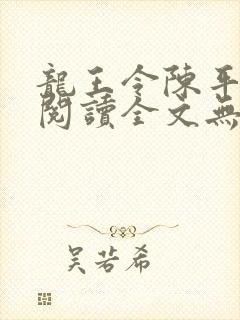 龍王令陳平
閱讀全文無
吳若希